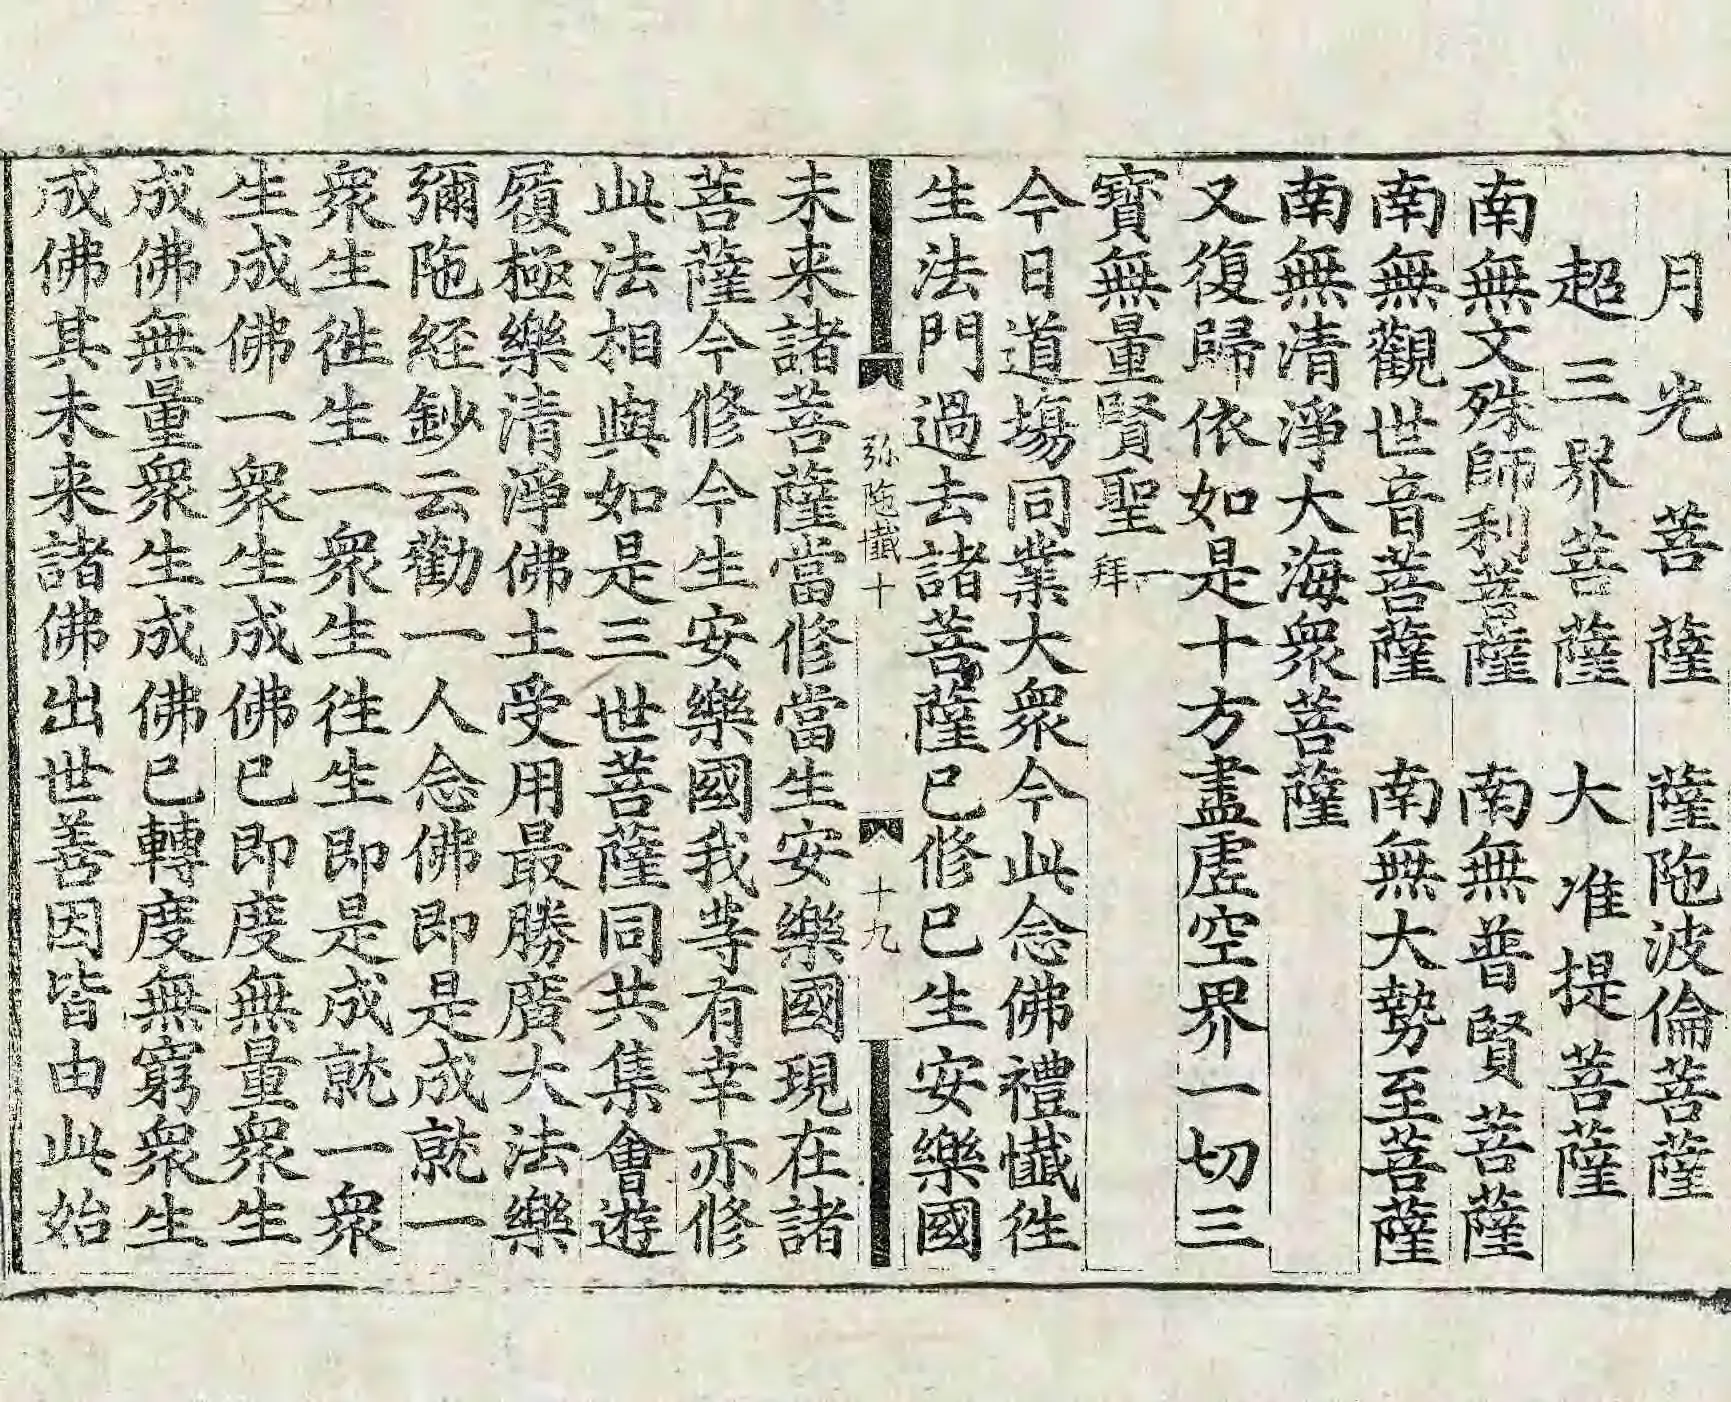 月光菩薩　薩陁波倫菩薩
超三界菩薩　大准提菩薩
南無文殊師利菩薩　南無普賢菩薩
南無觀世音菩薩　南無大勢至菩薩
南無清淨大海衆菩薩
又復歸依如是十方盡虛空界一切三
寶無量賢聖一拜
今日道塲同業大衆今此念佛禮懺徃
生法門過去諸菩薩已修已生安樂國
弥陁懺十　十九
未来諸菩薩當修當生安樂國現在諸
菩薩今修今生安樂國我䓁有幸亦修
此法相與如是三世菩薩同共集會遊
履極樂清淨佛土受用最勝廣大法樂
彌陁経鈔云勸一人念佛即是成就一
衆生徃生一衆生徃生即是成就一衆
生成佛一衆生成佛已即度無量衆生
成佛無量衆生成佛已轉度無窮衆生
成佛其未来諸佛出世善因皆由此始